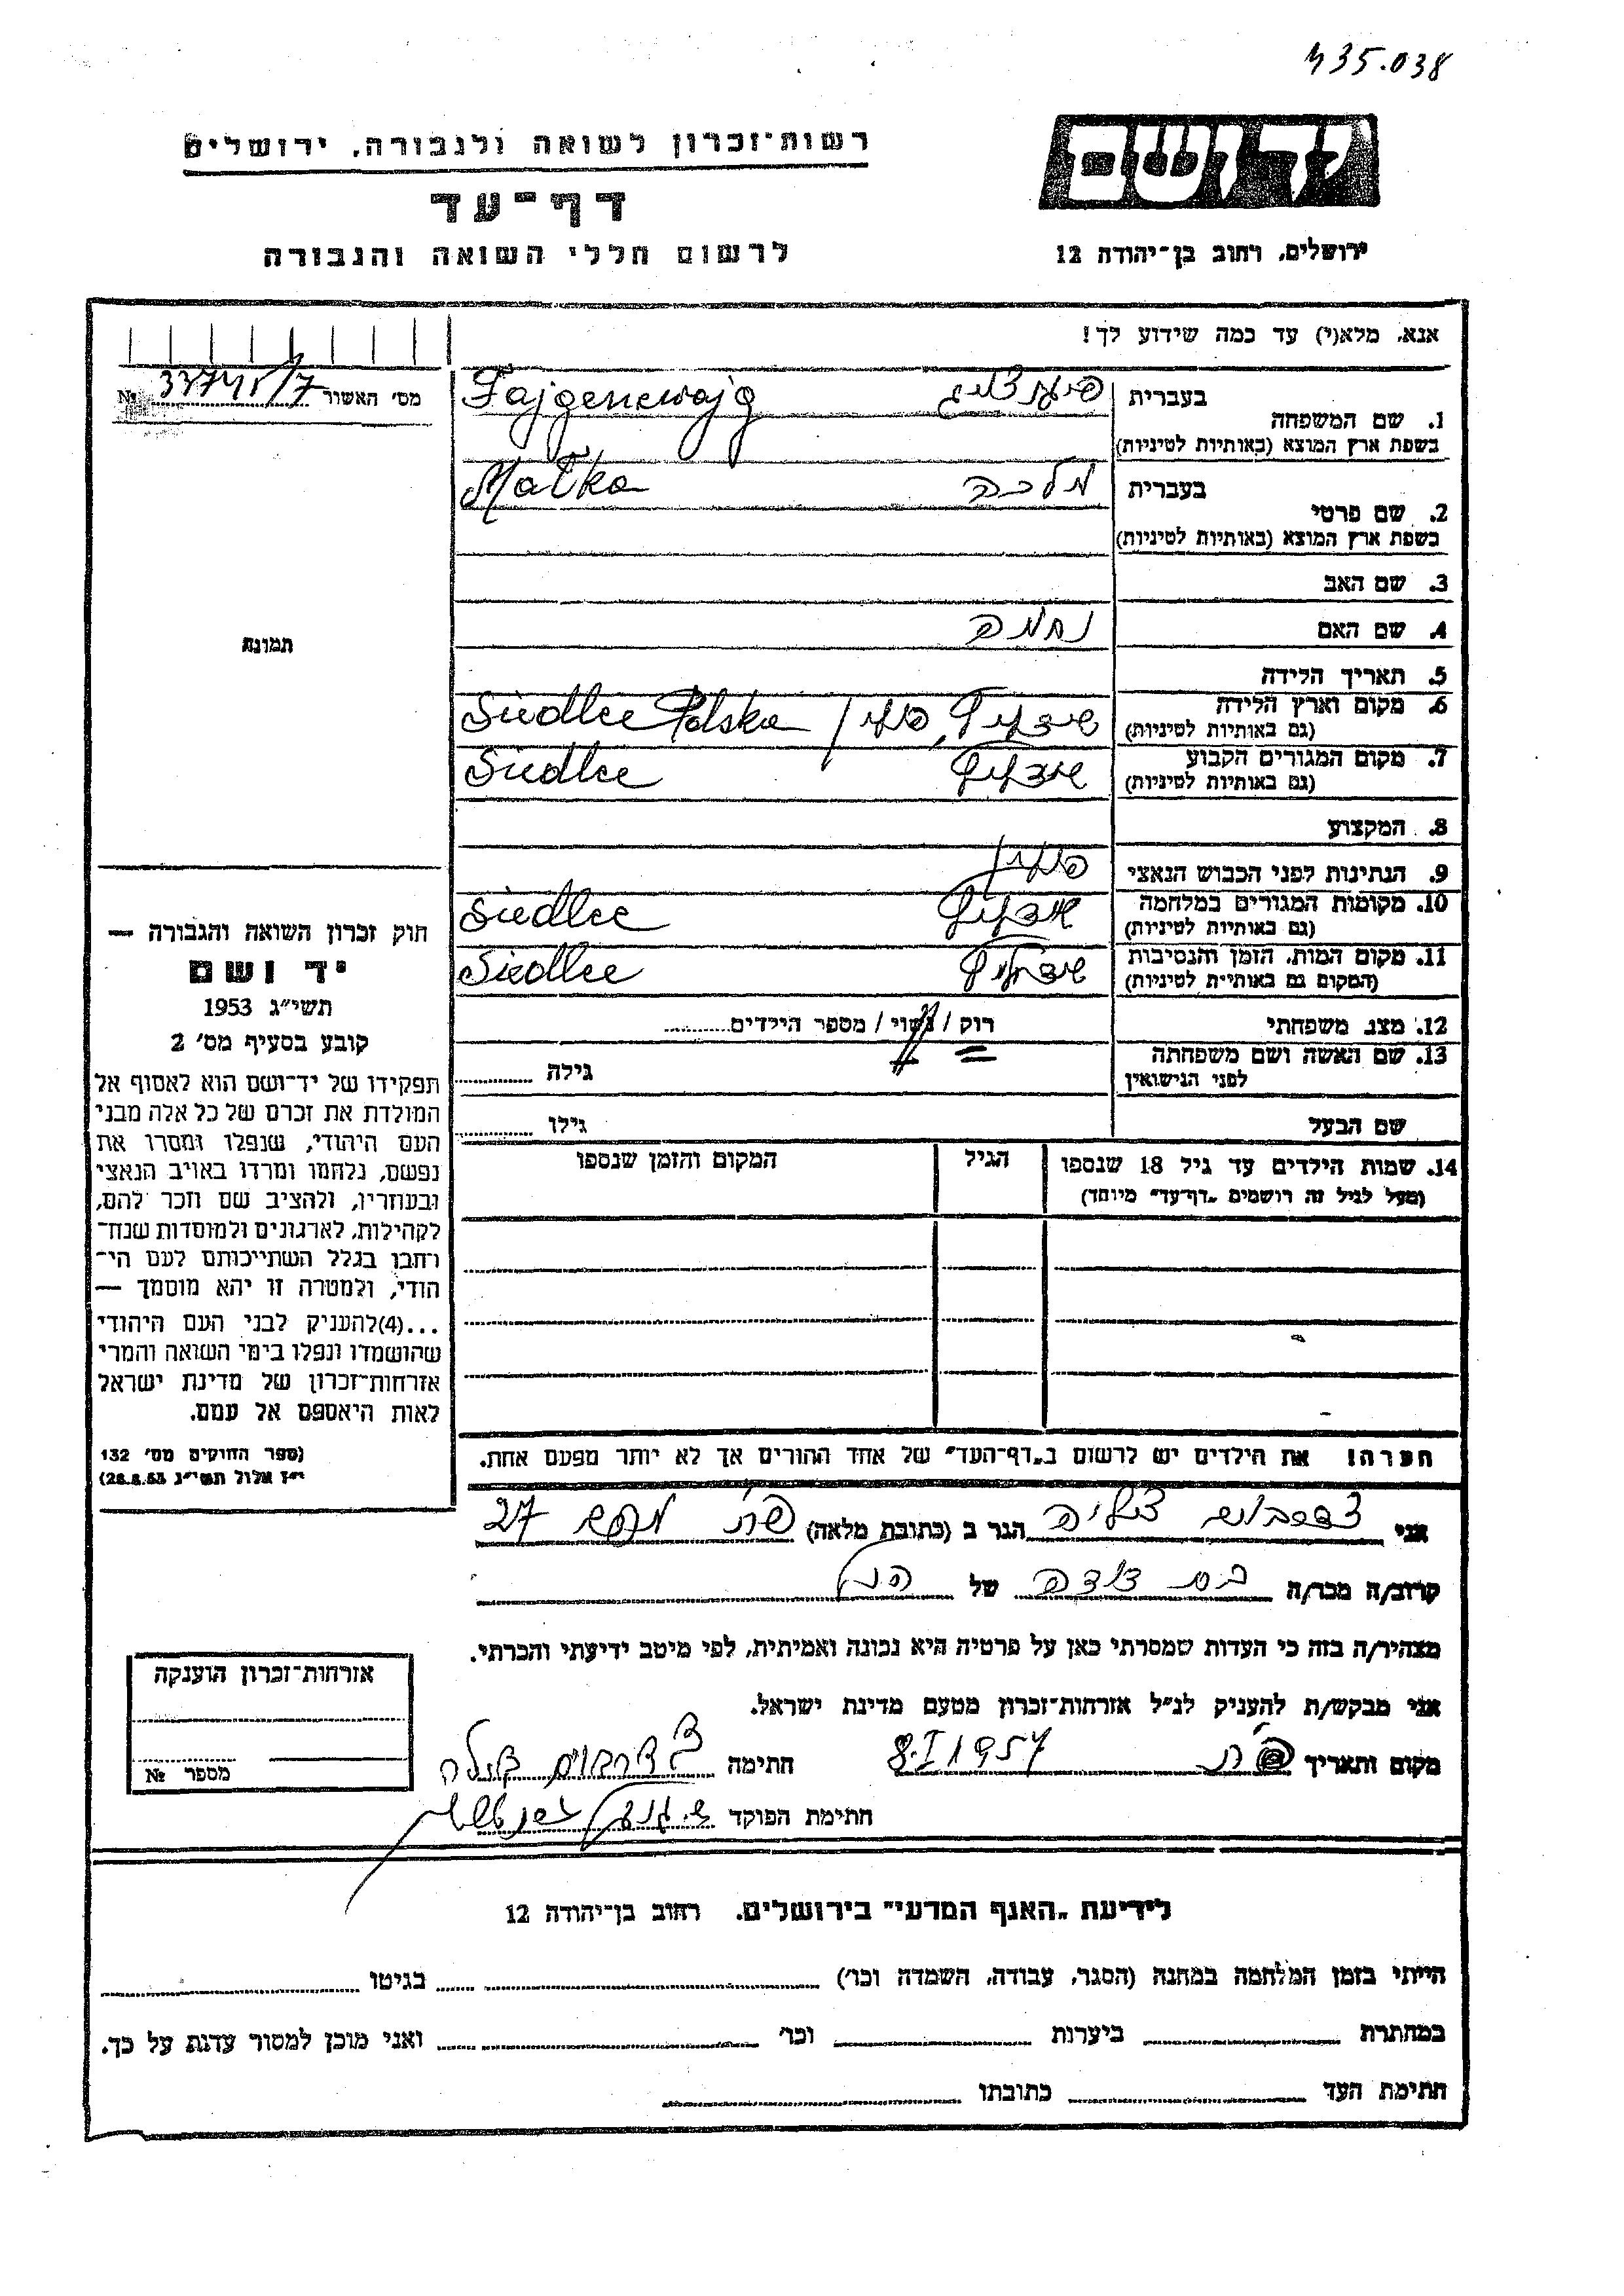 435.038
יד ושם
רשות־זכרון לשואה ולגבורה, ירושלים
דף־עד
לרשום חללי השואה והגבורה
ירושלים, רחוב בן־יהודה 12
אנא, מלא(י) עד כמה שידוע לך!
מס׳ האשור №
1. שם המשפחה בעברית
Fajgenewajg
בשפת ארץ המוצא (באותיות לטיניות)
2. שם פרטי בעברית מלכה Malka
בשפת ארץ המוצא (באותיות לטיניות)
3. שם האב
4. שם האם נחמה
5. תאריך הלידה
6. מקום וארץ הלידה Siedlce Polska
(גם באותיות לטיניות)
7. מקום המגורים הקבוע Siedlce
(גם באותיות לטיניות)
8. המקצוע
9. הנתינות לפני הכבוש הנאצי
10. מקומות המגורים במלחמה Siedlce
(גם באותיות לטיניות)
11. מקום המות, הזמן והנסיבות Siedlce
(המקום גם באותיית לטיניות)
12. מצב משפחתי רוק / נשוי / מספר הילדים
13. שם האשה ושם משפחתה גילה
לפני הנישואין
שם הבעל גילו
14. שמות הילדים עד גיל 18 שנספו הגיל המקום והזמן שנספו
(מעל לגיל זה רושמים „דף־עד״ מיוחד)
תמונה
חוק זכרון השואה והגבורה —
יד ושם
תשי״ג 1953
קובע בסעיף מס׳ 2
תפקידו של יד־ושם הוא לאסוף אל
המולדת את זכרם של כל אלה מבני
העם היהודי, שנפלו ומסרו את
נפשם, נלחמו ומרדו באויב הנאצי
ובעוזריו, ולהציב שם וזכר להם,
לקהילות, לארגונים ולמוסדות שנח־
רחבו בגלל השתייכותם לעם הי־
הודי, ולמטרה זו יהא מוסמך —
...(4)להעניק לבני העם היהודי
שהושמדו ונפלו בימי השואה והמרי
אזרחות־זכרון של מדינת ישראל
לאות היאספם אל עמם.
(ספר החוקים מס׳ 132
י״ז אלול תשי״ג 28.8.53)
הערה! את הילדים יש לרשום ב„דף־העד״ של אחד ההורים אך לא יותר מפעם אחת.
אני הגר ב (כתובת מלאה) 27
קרוב/ה מכר/ה בת דודה של הנ״ל
מצהיר/ה בזה כי העדות שמסרתי כאן על פרטיה היא נכונה ואמיתית, לפי מיטב ידיעתי והכרתי.
אני מבקש/ת להעניק לנ״ל אזרחות־זכרון מטעם מדינת ישראל.
מקום ותאריך 8.I 1957 חתימה
חתימת הפוקד
אזרחות־זכרון הוענקה
מספר №
לידיעת „האנף המדעי״ בירושלים. רחוב בן־יהודה 12
הייתי בזמן המלחמה במחנה (הסגר, עבודה, השמדה וכר׳) בגיטו
במחתרת ביערות וכר׳ ואני מוכן למסור עדות על כך.
חתימת העד כתובתו